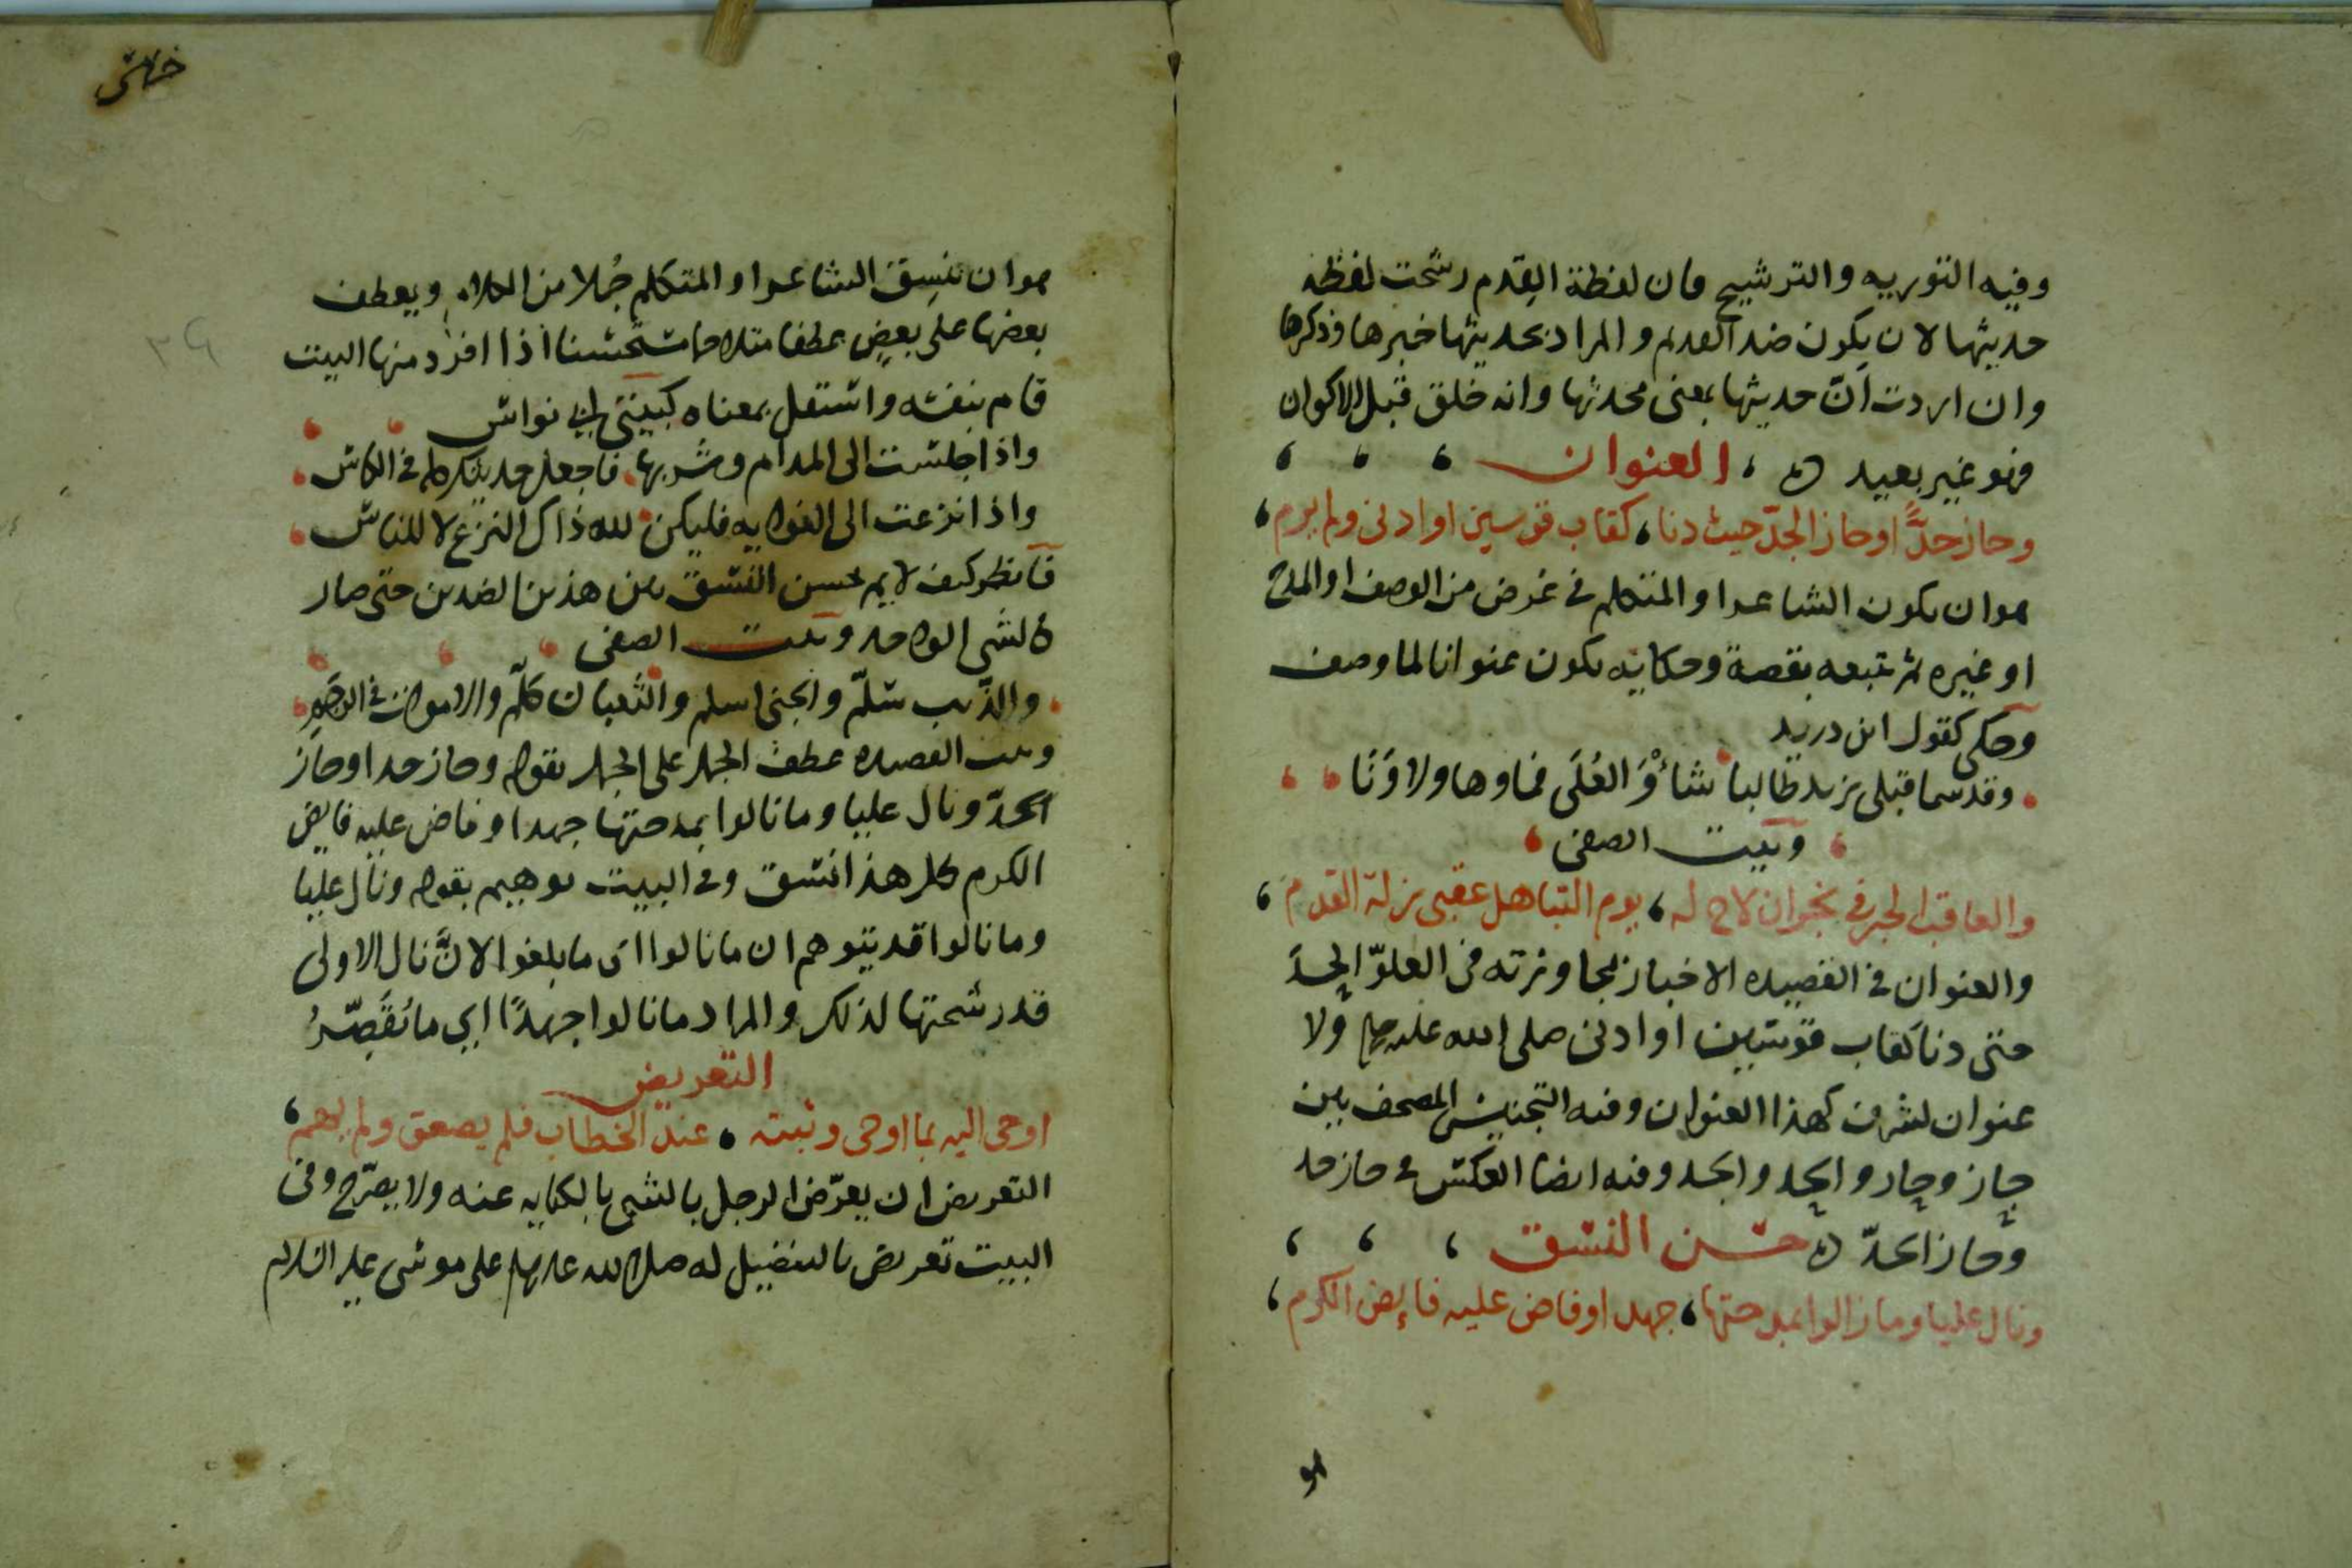 وفيه التوريه والترشيح فان لفظة القِدم رشحت لفظة
حديثها لان يكون ضد القديم والمراد بحديثها خبرها وذكرها
وان اردت انّ حديثها بمعنى محدثها وانه خلق قبل الاكوان
فهو غير بعيد ه العنوان
وحاز حدًّا وحاز الجدّ حيث دنا، كقاب قوسين او ادنى ولم يرم
هو ان يكون الشاعر او المتكلم في غرض من الوصف او المدح
او غيره ثم تتبعه بقصة وحكايه يكون عنوانا لما وصف
وحكى كقول ابن دريد
وقد سما قبلي يزيد طالبا شأوَ العُلَى فما وها ولا وَنَا
وبيت الصفى
والعاقب الحبر في نجران لاح له، يوم التباهل عقبى زلة القدم
والعنوان في القصيده الاخبار بمجاوزته في العلوّ الحدّ
حتى دنا كقاب قوسين او ادنى صلى الله عليه وسلم ولا
عنوان لشرف كهذا العنوان وفيه التجنيس المصحف بين
حاز وجاز والحد والجد وفيه ايضا العكس في حاز حد
وحاز الحدّ ه حسن النسق
ونال عليا وما نالوا بمدحتها، جهدا وفاض عليه فايض الكرم
هو
هو ان ينسِق الشاعر او المتكلم جُملا من الكلام ويعطف
بعضها على بعضٍ عطفا متلاحما مستحسنا اذا افرد منها البيت
قام بنفسه واستقل بمعناه كبيتي ابي نواس
واذا جلست الى المدام وشربها، فاجعل حديثك كله في الكاس
واذا نزعت الى الغوايه فليكن لله ذاك النزع لا للناس
فانظر كيف لايم بحسن النسق بين هذين الضدين حتى صار
كالشي الواحد وبيت الصفى
والذّيب سلّم والجنى اسلم والثعبان كلّم والاموات في الرجم
وبيت القصيده عطف الجمل على الجمل بقوله وحاز حدا وحاز
الجدّ ونال عليا وما نالوا بمدحتها جهدا وفاض عليه فايض
الكرم كل هذا نسق وفي البيت توهيم بقوله ونال عليا
وما نالوا قد يتوهم ان ما نالوا اى ما بلغوا لانَّ نال الاولى
قد رشحتها لذلك والمراد ما نالوا جهدًا اي ما نُقَصِّرُ
التعريض
اوحى اليه بما اوحى وثبته، عند الخطاب فلم يصعق ولم يهم
التعريض ان يعرّض الرجل بالشي بالكنايه عنه ولا يصرّح وفى
البيت تعريض بالتفضيل له صلى الله عليه وسلم على موسى عليه السلام